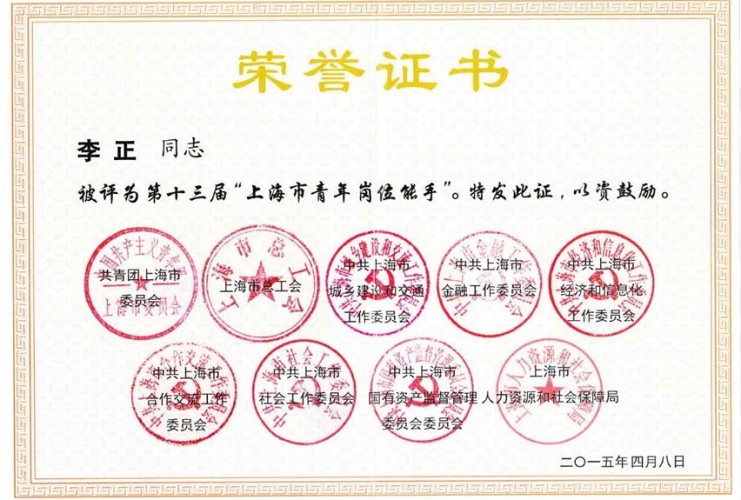 荣誉证书
李正 同志
被评为第十三届“上海市青年岗位能手”。特发此证，以资鼓励。
共青团上海市
委员会
上海市总工会
中共上海市
城乡建设和交通
工作委员会
中共上海市
金融工作委员会
中共上海市
经济和信息化
工作委员会
中共上海市
合作交流工作
委员会
中共上海市
社会工作委员会
中共上海市
国有资产监督管理
委员会委员会
人力资源和社会保障局
二〇一五年四月八日